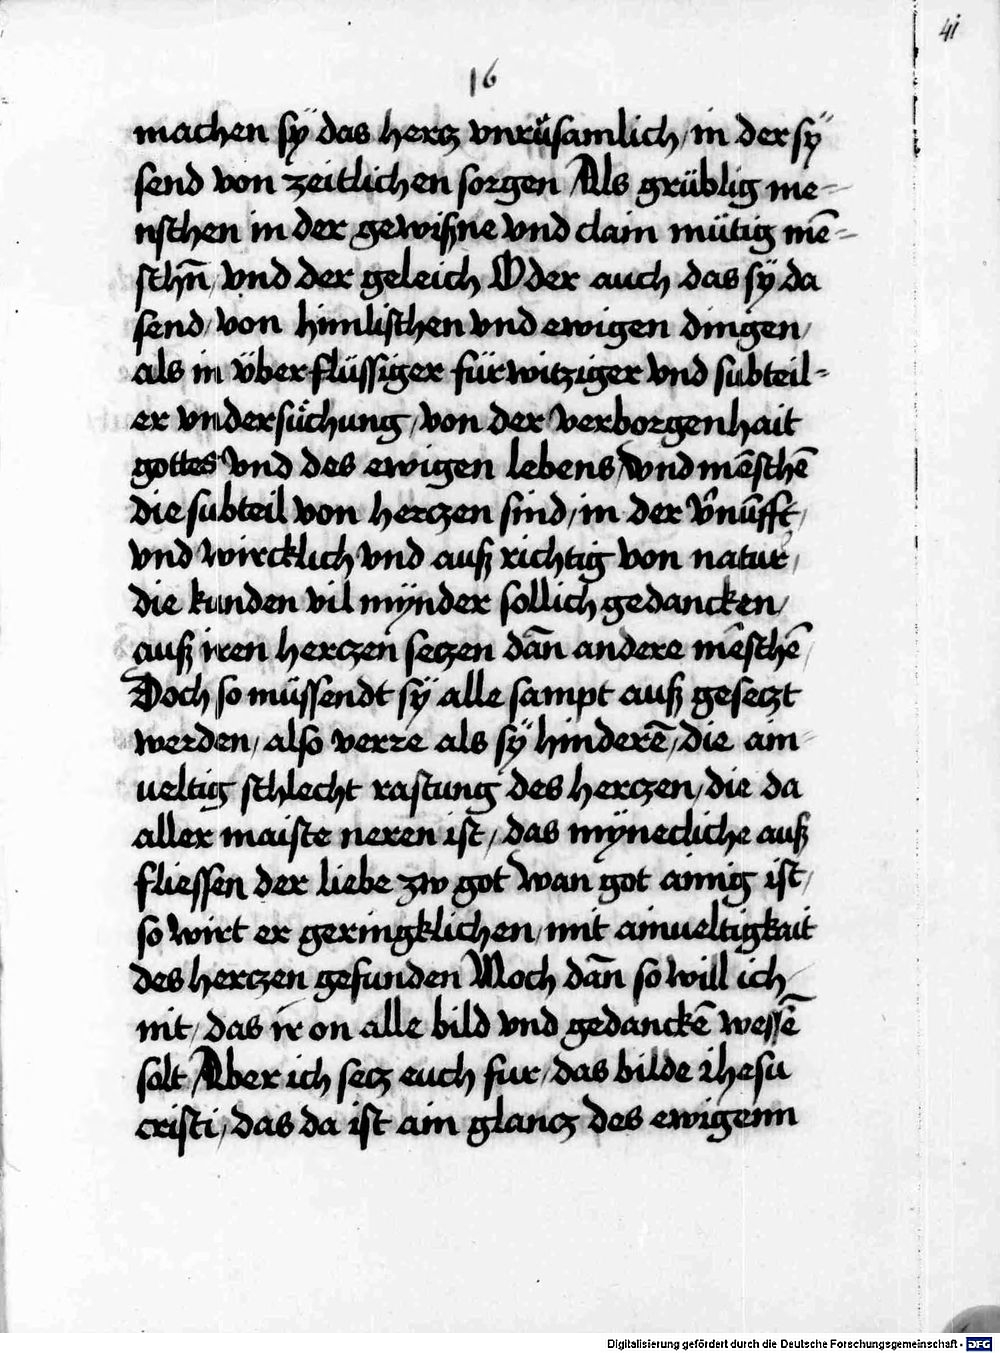 41
16
machen sÿ das hercz vnrůsamlich / in der sÿ
send von zeitlichen sorgen Als grüblig me-
nschen in der gewißne vnd clain mütig mē-
schn̄ / vnd der geleich Oder auch das sÿ da
send / von himlischen vnd ewigen dingen /
als in überflüssiger fürwitziger vnd subteil-
er vndersůchung / von der verborgenhait
gottes vnd des ewigen lebens / vnd mēschē
die subteil von herczen sind / in der v̄nūfft /
vnd wircklich vnd auß richtig von natur /
die kunden vil mÿnder sollich gedancken /
auß iren herczen seczen dān andere mēschē /
Doch so müssendt sÿ alle sampt auß geseczt
werden / also verre als sÿ hinderē / die ain
ueltig schlecht rastung des herczen / die da
aller maiste neren ist / das mÿnecliche auß
fliessen der liebe zw got wan got ainig ist /
so wirt er geringklichen / mit ainueltigkait
des herczen gefunden Noch dān so will ich
nit / das ir on alle bild vnd gedanckē wessē
solt / Aber ich secz euch fur / das bilde ihesu
cristi / das da ist ain glancz des ewigenn
Digitalisierung gefördert durch die Deutsche Forschungsgemeinschaft - DFG